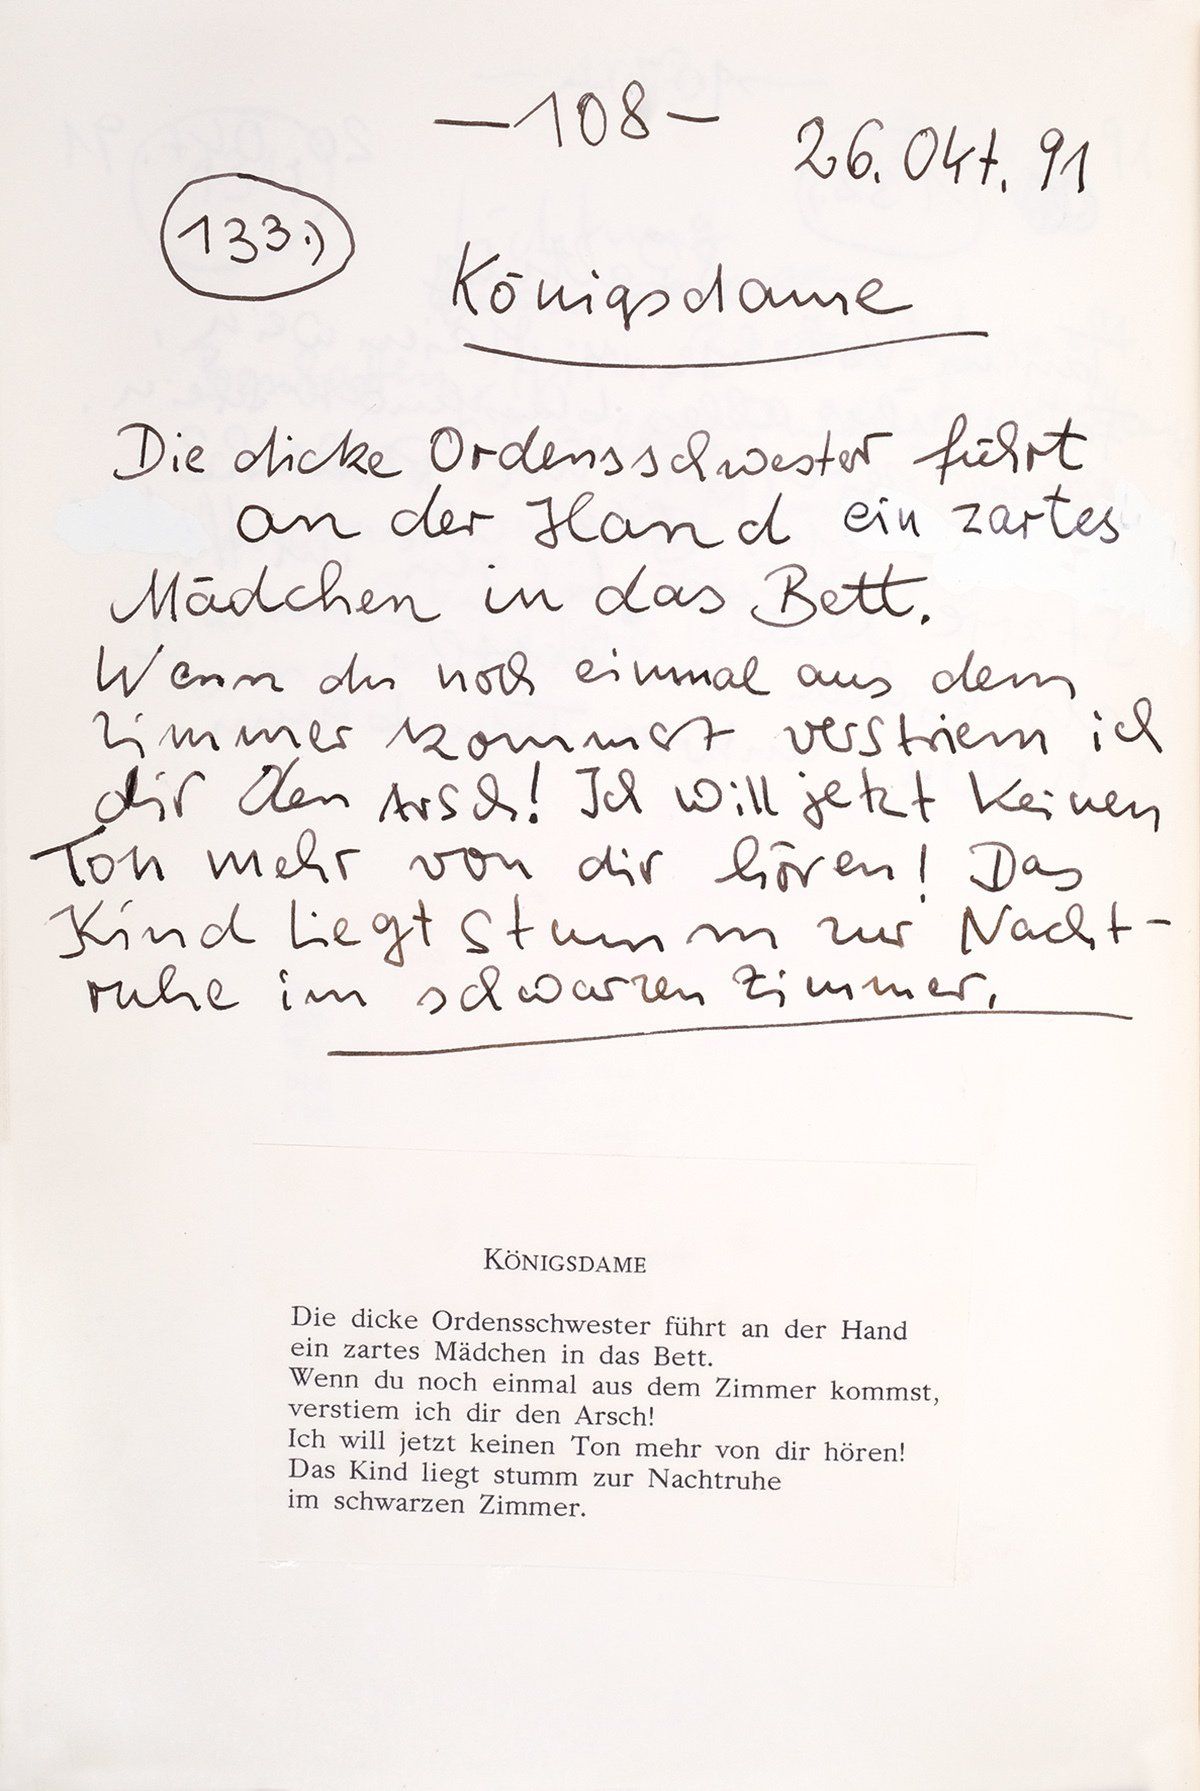 —108—
26. Okt. 91
133.)
Königsdame
Die dicke Ordensschwester führt
an der Hand ein zartes
Mädchen in das Bett.
Wenn du noch einmal aus dem
Zimmer kommst verstriem ich
dir den Arsch! Ich will jetzt keinen
Ton mehr von dir hören! Das
Kind liegt stumm zur Nacht-
ruhe im schwarzen Zimmer.
KÖNIGSDAME
Die dicke Ordensschwester führt an der Hand
ein zartes Mädchen in das Bett.
Wenn du noch einmal aus dem Zimmer kommst,
verstiem ich dir den Arsch!
Ich will jetzt keinen Ton mehr von dir hören!
Das Kind liegt stumm zur Nachtruhe
im schwarzen Zimmer.